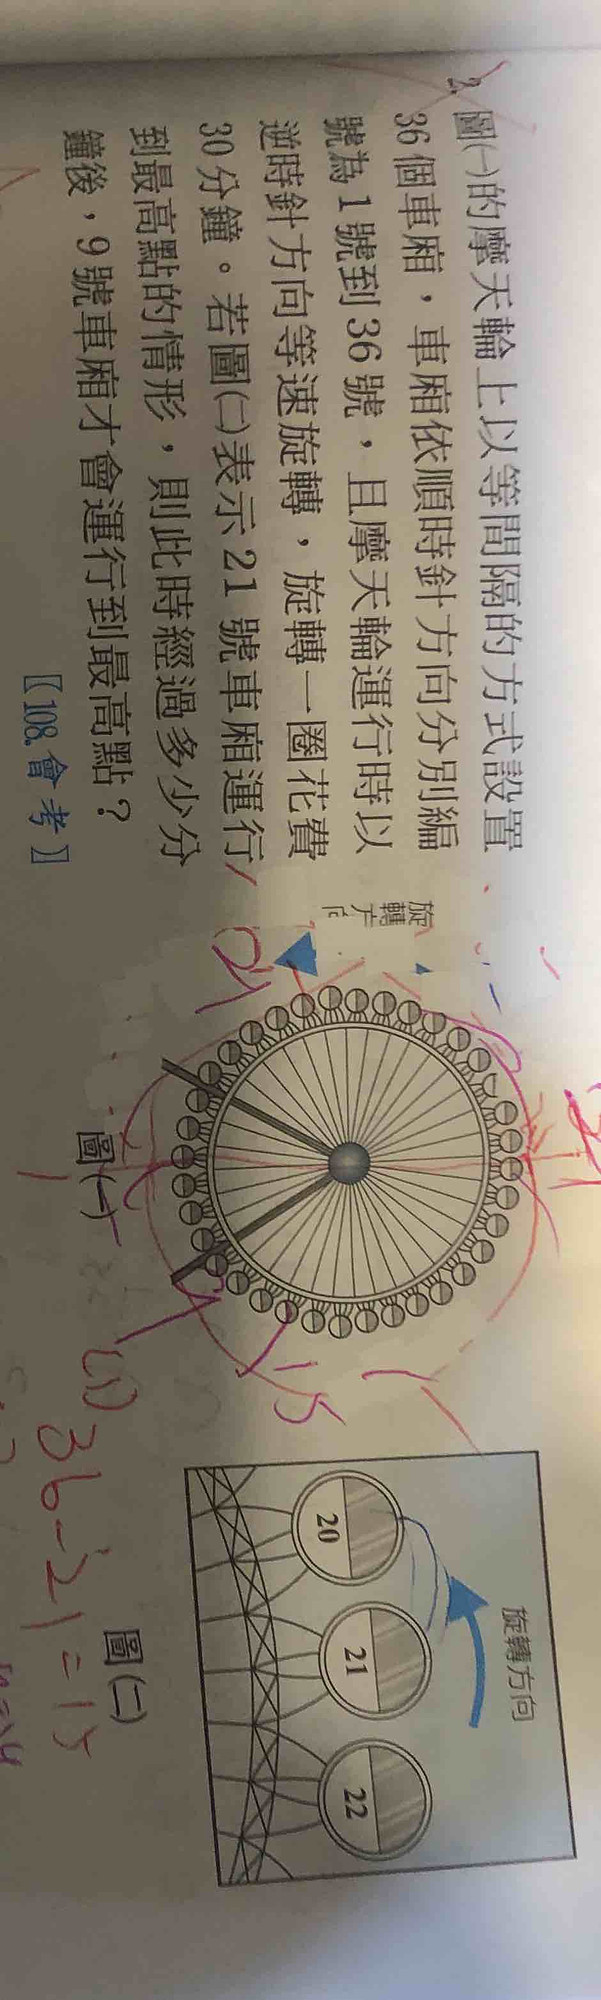 2. 圖㈠的摩天輪上以等間隔的方式設置
36個車廂，車廂依順時針方向分別編
號為1號到36號，且摩天輪運行時以
逆時針方向等速旋轉，旋轉一圈花費
30分鐘。若圖㈡表示21號車廂運行
到最高點的情形，則此時經過多少分
鐘後，9號車廂才會運行到最高點？
【108.會考】
旋
轉
方
向
21
21
15
圖㈠
旋轉方向
20 21 22
圖㈡
(1) 36-21=15